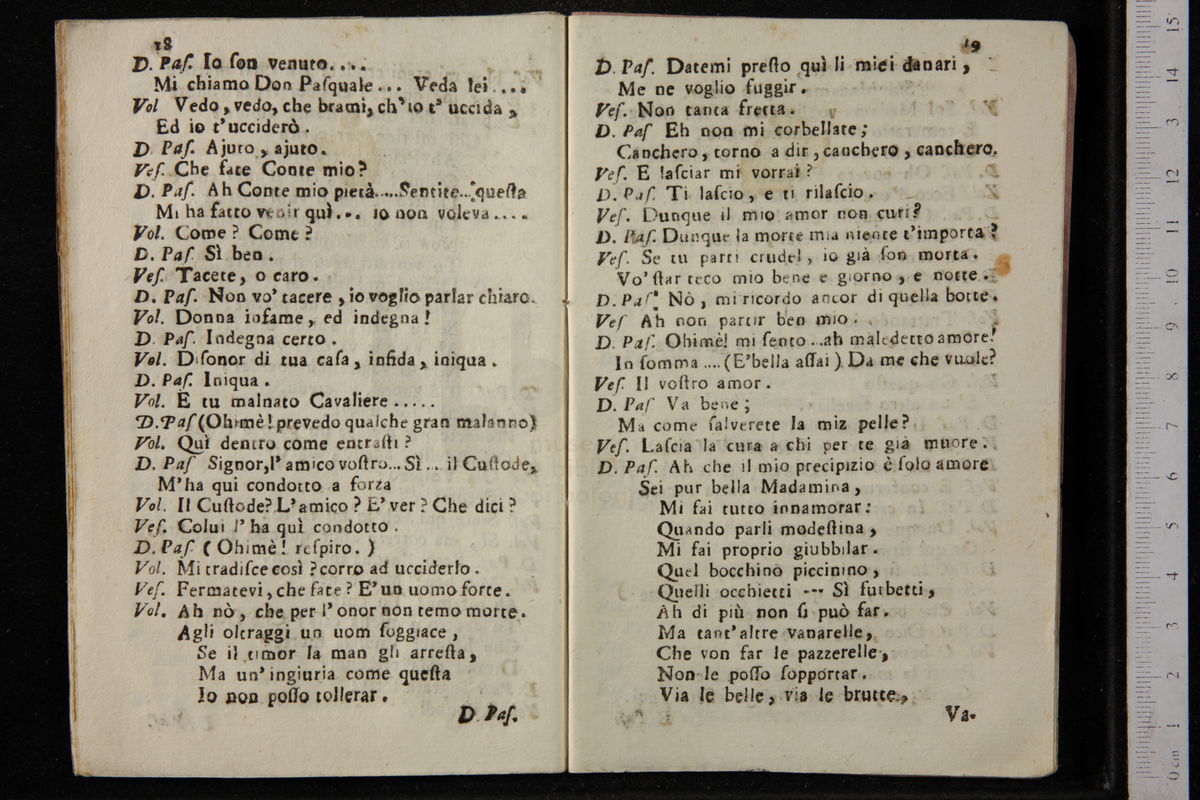 18
D. Paſ. Io ſon venuto....
Mi chiamo Don Paſquale... Veda lei....
Vol Vedo, vedo, che brami, ch'io t'uccida,
Ed io t'ucciderò.
D. Paſ. Ajuto, ajuto.
Veſ. Che fate Conte mio?
D. Paſ. Ah Conte mio pietà.....Sentite...queſta
Mi ha fatto venir quì... io non voleva....
Vol. Come? Come?
D. Paſ Sì ben.
Veſ. Tacete, o caro.
D. Paſ. Non vo' tacere, io voglio parlar chiaro.
Vol. Donna infame, ed indegna!
D. Paſ. Indegna certo.
Vol. Diſonor di tua caſa, infida, iniqua.
D. Paſ. Iniqua.
Vol. E tu malnato Cavaliere.....
D. Paſ (Ohimè! prevedo qualche gran malanno)
Vol. Quì dentro come entraſti?
D. Paſ Signor, l'amico voſtro... Sì... il Cuſtode,
M'ha qui condotto a forza
Vol. Il Cuſtode? L'amico? E' ver? Che dici?
Veſ. Colui l'ha quì condotto.
D. Paſ (Ohimè! reſpiro.)
Vol. Mi tradiſce così? corro ad ucciderlo.
Veſ. Fermatevi, che fate? E' un uomo forte.
Vol. Ah nò, che per l'onor non temo morte.
Agli oltraggi un uom ſoggiace,
Se il timor la man gli arreſta,
Ma un' ingiuria come queſta
Io non poſſo tollerar.
D. Paſ.
19
D. Paſ. Datemi preſto quì li miei danari,
Me ne voglio fuggir.
Veſ. Non tanta fretta.
D. Paſ Eh non mi corbellate;
Canchero, torno a dir, canchero, canchero.
Veſ. E laſciar mi vorrai?
D. Paſ. Ti laſcio, e ti rilaſcio.
Veſ. Dunque il mio amor non curi?
D. Paſ. Dunque la morte mia niente t'importa?
Veſ. Se tu parti crudel, io già ſon morta.
Vo' ſtar teco mio bene e giorno, e notte.
D. Paſ. Nò, mi ricordo ancor di quella botte.
Veſ Ah non partir ben mio.
D. Paſ. Ohimè! mi ſento...ah maledetto amore!
In ſomma.... (E' bella aſſai) Da me che vuole?
Veſ. Il voſtro amor.
D. Paſ Va bene;
Ma come ſalverete la miz pelle?
Veſ. Laſcia la cura a chi per te già muore.
D. Paſ. Ah che il mio precipizio è ſolo amore
Sei pur bella Madamina,
Mi fai tutto innamorar:
Quando parli modeſtina,
Mi fai proprio giubbilar.
Quel bocchino piccinino,
Quelli occhietti --- Sì furbetti,
Ah di più non ſi può far.
Ma tant' altre vanarelle,
Che von far le pazzerelle,
Non le poſſo ſopportar.
Via le belle, via le brutte,
Va-
15
14
13
12
11
10
9
8
7
6
5
4
3
2
1
0 cm